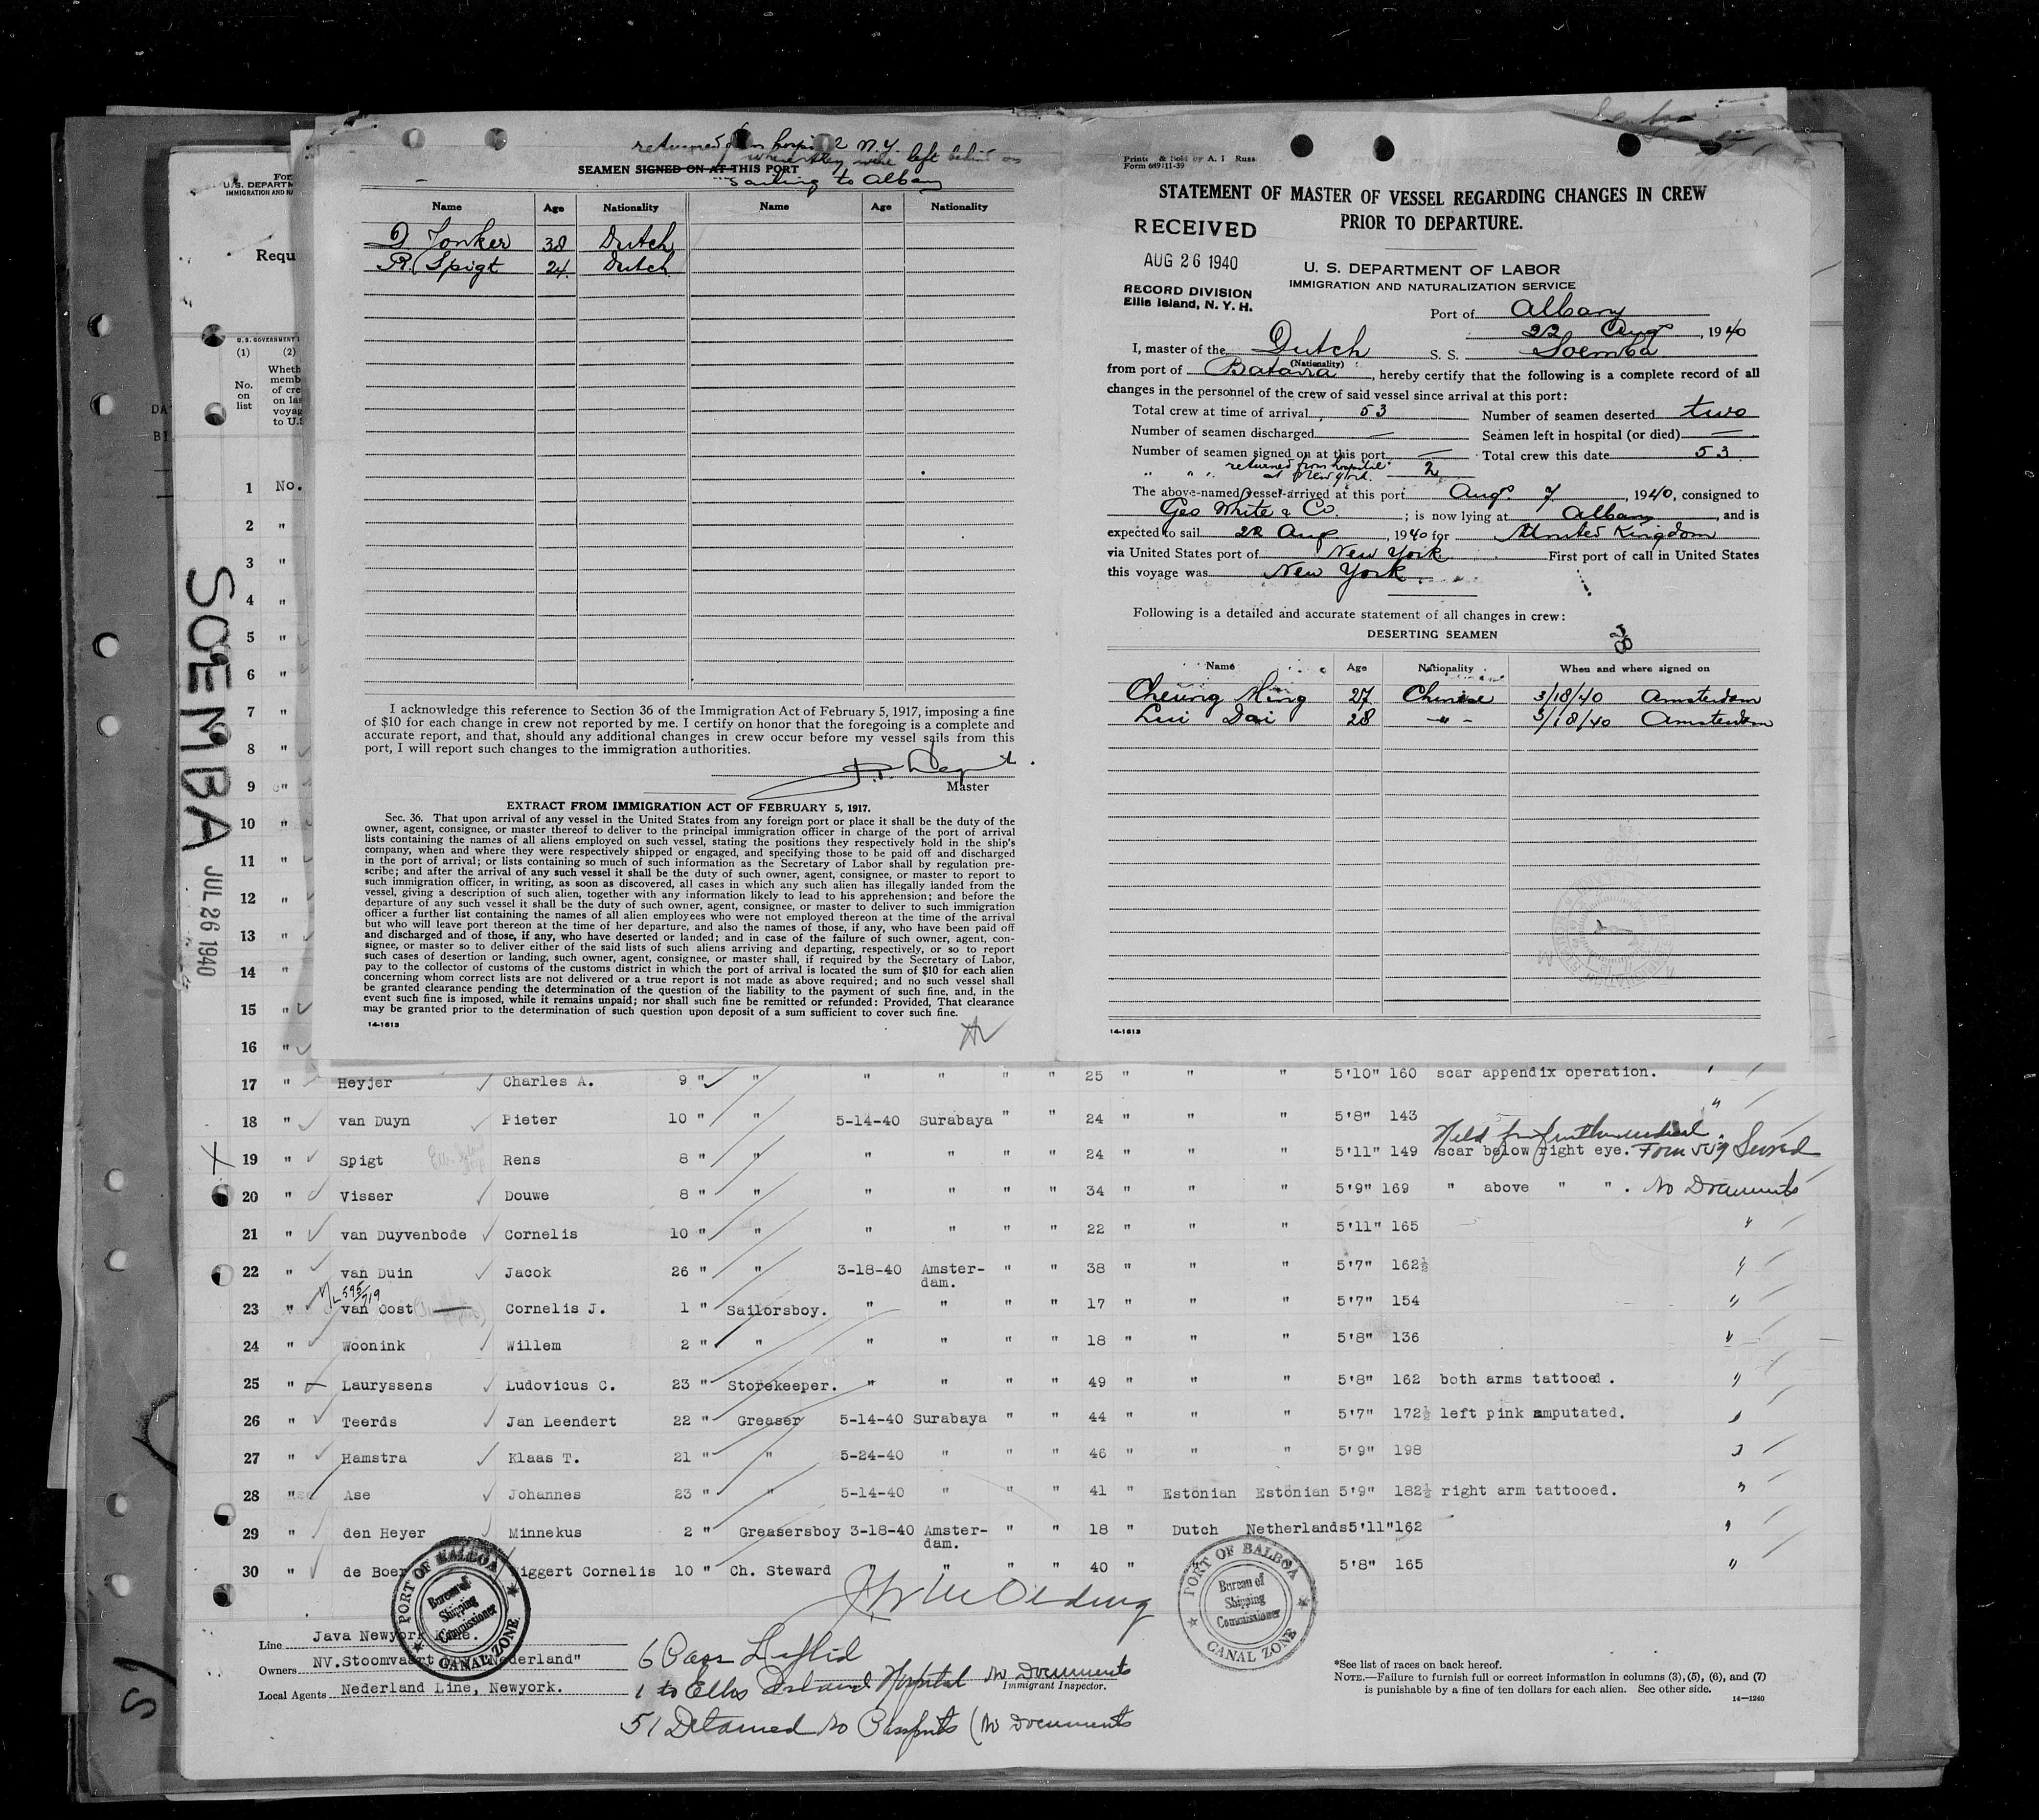 returned from hospital N.Y.
where they were left behind on
SEAMEN SIGNED ON AT THIS PORT
sailing to Albany
Name Age Nationality Name Age Nationality
D Jonker 38 Dutch
R. Spigt 24. Dutch
I acknowledge this reference to Section 36 of the Immigration Act of February 5, 1917, imposing a fine
of $10 for each change in crew not reported by me. I certify on honor that the foregoing is a complete and
accurate report, and that, should any additional changes in crew occur before my vessel sails from this
port, I will report such changes to the immigration authorities.
Master
EXTRACT FROM IMMIGRATION ACT OF FEBRUARY 5, 1917.
Sec. 36. That upon arrival of any vessel in the United States from any foreign port or place it shall be the duty of the
owner, agent, consignee, or master thereof to deliver to the principal immigration officer in charge of the port of arrival
lists containing the names of all aliens employed on such vessel, stating the positions they respectively hold in the ship's
company, when and where they were respectively shipped or engaged, and specifying those to be paid off and discharged
in the port of arrival; or lists containing so much of such information as the Secretary of Labor shall by regulation pre-
scribe; and after the arrival of any such vessel it shall be the duty of such owner, agent, consignee, or master to report to
such immigration officer, in writing, as soon as discovered, all cases in which any such alien has illegally landed from the
vessel, giving a description of such alien, together with any information likely to lead to his apprehension; and before the
departure of any such vessel it shall be the duty of such owner, agent, consignee, or master to deliver to such immigration
officer a further list containing the names of all alien employees who were not employed thereon at the time of the arrival
but who will leave port thereon at the time of her departure, and also the names of those, if any, who have been paid off
and discharged and of those, if any, who have deserted or landed; and in case of the failure of such owner, agent, con-
signee, or master so to deliver either of the said lists of such aliens arriving and departing, respectively, or so to report
such cases of desertion or landing, such owner, agent, consignee, or master shall, if required by the Secretary of Labor,
pay to the collector of customs of the customs district in which the port of arrival is located the sum of $10 for each alien
concerning whom correct lists are not delivered or a true report is not made as above required; and no such vessel shall
be granted clearance pending the determination of the question of the liability to the payment of such fine, and, in the
event such fine is imposed, while it remains unpaid; nor shall such fine be remitted or refunded: Provided, That clearance
may be granted prior to the determination of such question upon deposit of a sum sufficient to cover such fine.
14-1613
Form 689/11-39
STATEMENT OF MASTER OF VESSEL REGARDING CHANGES IN CREW
PRIOR TO DEPARTURE.
RECEIVED
AUG 26 1940
RECORD DIVISION
Ellis Island, N. Y. H.
U. S. DEPARTMENT OF LABOR
IMMIGRATION AND NATURALIZATION SERVICE
Port of Albany
22 Aug, 1940
I, master of the Dutch S. S. Soemba
(Nationality)
from port of Batavia, hereby certify that the following is a complete record of all
changes in the personnel of the crew of said vessel since arrival at this port:
Total crew at time of arrival 53 Number of seamen deserted two
Number of seamen discharged — Seamen left in hospital (or died) —
Number of seamen signed on at this port — Total crew this date 53
" " " returned from hospital at New York. 2
The above-named vessel arrived at this port Aug. 7, 1940, consigned to
Geo White & Co.; is now lying at Albany, and is
expected to sail 22 Aug, 1940 for United Kingdom
via United States port of New York. First port of call in United States
this voyage was New York
Following is a detailed and accurate statement of all changes in crew:
DESERTING SEAMEN
Name Age Nationality When and where signed on
Cheung Ming 27 Chinese 3/18/40 Amsterdam
Lui Dai 28 -"- 3/18/40 Amsterdam
14-1613
U.S. DEPARTM
IMMIGRATION AND NA
Requ
U.S. GOVERNMENT
(1) (2)
No. on list
Wheth
memb
of cre
on las
voyag
to U.S
SOEMBA JUL 26 1940
1 No.
2 "
3 "
4 "
5 "
6 "
7 "
8 "
9 "
10 "
11 "
12 "
13 "
14 "
15 "
16 "
17 " Heyjer Charles A. 9 " " " " " " 25 " " " 5'10" 160 scar appendix operation. "
18 " van Duyn Pieter 10 " " 5-14-40 Surabaya " " 24 " " " 5'8" 143 "
19 " Spigt Rens 8 " " " " " " 24 " " " 5'11" 149 scar below right eye. Form 509 Served
20 " Visser Douwe 8 " " " " " " 34 " " " 5'9" 169 " above " ". No Documents
21 " van Duyvenbode Cornelis 10 " " " " " " 22 " " " 5'11" 165 "
22 " van Duin Jacok 26 " " 3-18-40 Amster-dam. " " 38 " " " 5'7" 162½ "
23 " van Oost Cornelis J. 1 " Sailorsboy. " " " " 17 " " " 5'7" 154 "
24 " Woonink Willem 2 " " " " " " 18 " " " 5'8" 136 "
25 " Lauryssens Ludovicus C. 23 " Storekeeper. " " " " 49 " " " 5'8" 162 both arms tattooed. "
26 " Teerds Jan Leendert 22 " Greaser 5-14-40 Surabaya " " 44 " " " 5'7" 172½ left pink amputated. "
27 " Hamstra Klaas T. 21 " " 5-24-40 " " " 46 " " " 5'9" 198 "
28 " Ase Johannes 23 " " 5-14-40 " " " 41 " Estonian Estonian 5'9" 182½ right arm tattooed. "
29 " den Heyer Minnekus 2 " Greasersboy 3-18-40 Amster-dam. " " 18 " Dutch Netherlands 5'11" 162 "
30 " de Boer Wiggert Cornelis 10 " Ch. Steward " " " " 40 " " " 5'8" 165 "
PORT OF BALBOA
Bureau of
Shipping
Commissioner
CANAL ZONE
PORT OF BALBOA
Bureau of
Shipping
Commissioner
CANAL ZONE
Line Java Newyork Line.
Owners NV.Stoomvaart "Nederland"
Local Agents Nederland Line, Newyork.
1 to Ellis Island Hospital No Documents
Immigrant Inspector.
51 Detained No Passports (No Documents
*See list of races on back hereof.
NOTE.—Failure to furnish full or correct information in columns (3), (5), (6), and (7)
is punishable by a fine of ten dollars for each alien. See other side.
14—1240